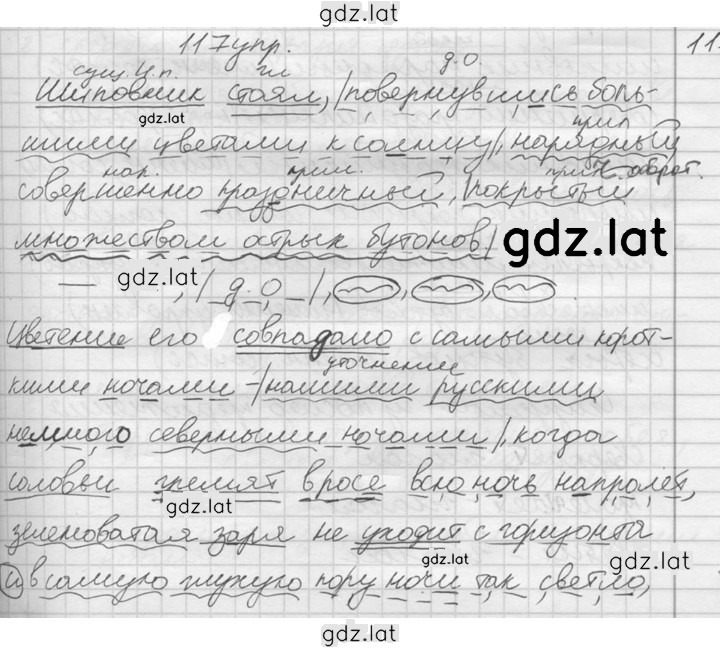 gdz.lat
117упр.
11
сущ. И.п. гл д.о.
Шиповник стоял, /повернувшись боль-
gdz.lat
шими цветами к солнцу/, нарядный
нар. прил.
совершенно праздничный, покрытый
множеством острых бутонов/
gdz.lat
gdz.lat
— , / д.о /, , ,
Цветение его совпадало с самыми корот-
уточнение
кими ночами -/нашими русскими
немного северными ночами/, когда
соловьи гремят в росе всю ночь напролёт,
gdz.lat
зеленоватая заря не уходит с горизонта
gdz.lat
gdz.lat
и в самую глухую пору ночи так светло,
gdz.lat